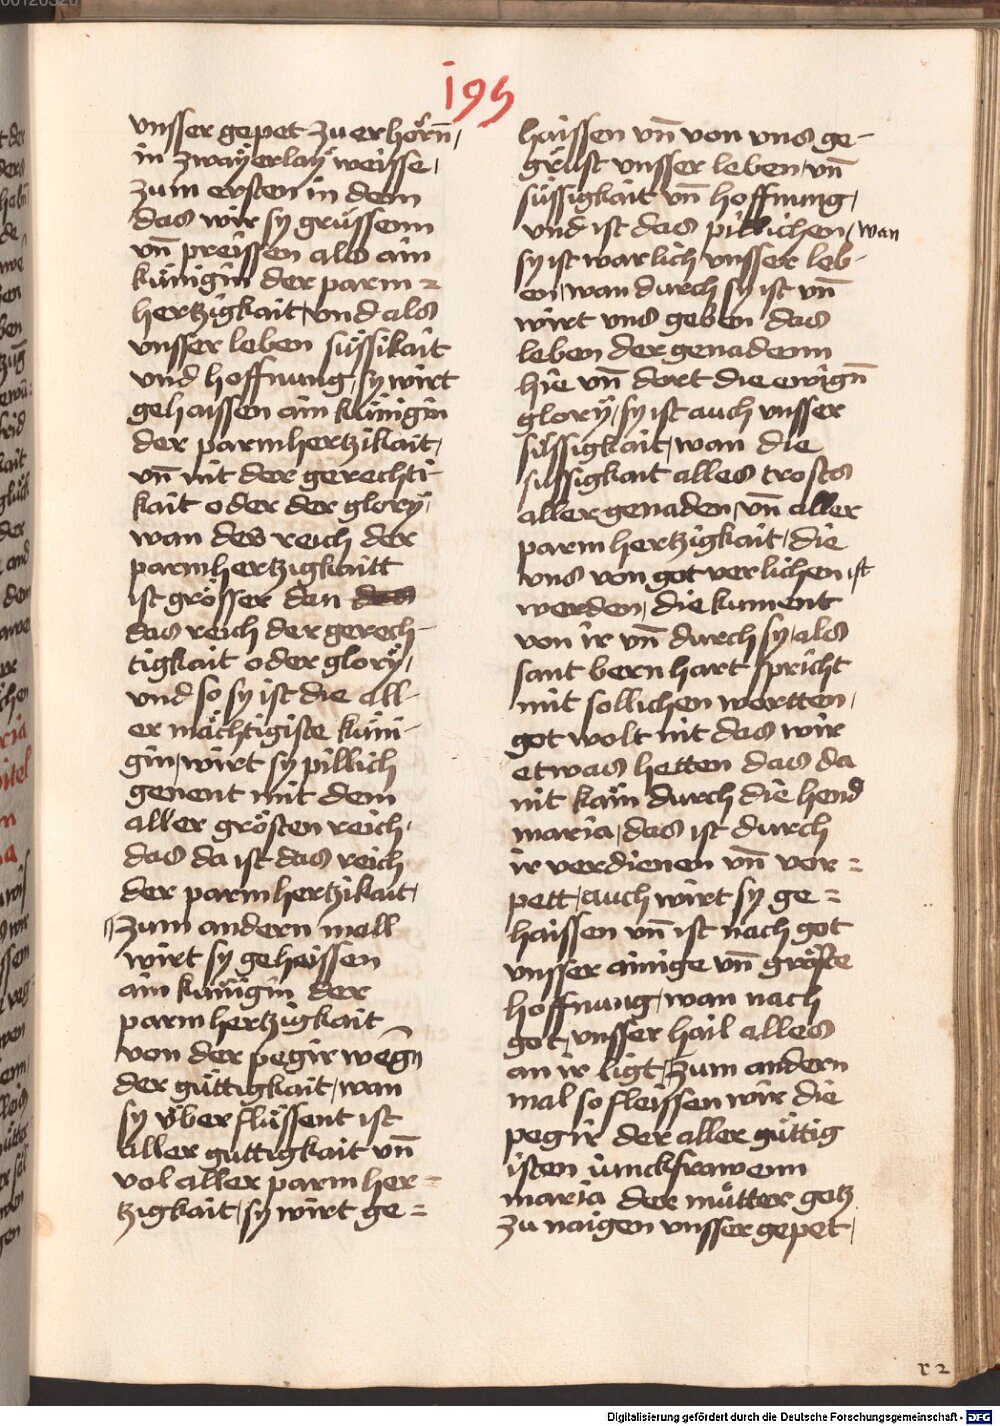 195
vnsser gepet zu erhörn̄,
in zwaÿerlaÿ weisse,
zum ersten in dem
das wir sy grüssenn
vn̄ preissen als ain
künigin der parm=
hertzigkait, vnd als
vnsser leben süssikait
vnd hoffnung, sy wirt
gehaissen ain künigin
der parmhertzikait,
vn̄ nit der gerechti-
kait oder der glorÿ,
wan des reich der
parmhertzigkaitt
ist grösser dan das
das reich der gerech-
tigkait oder glorÿ,
vnd so sy ist die all-
er mächtigiste küni-
gin, wirt sy pillich
genent mit dem
aller grösten reich,
das da ist das reich
der parmhertzikait,
Zum andern mall
wirt sy gehaissen
ain künigin der
parmhertzigkait
von der pegir wegn̄
der güttigkait, wan
sy über flüssent ist
aller guttigkait vn̄
vol aller parmher=
tzigkait, sy wirt ge=
haissen vn̄ von vns ge-
grüst vnsser leben, vn̄
süssigkait vn̄ hoffnung,
vnd ist das pillichen, wan
sy ist warlich vnsser leb-
en, wan durch sy ist vn̄
wirt vns geben das
leben der genadenn
hie vn̄ dort die ewign̄
glorÿ, sy ist auch vnsser
süssigkait, wan die
sussigkait alles trostes
aller genaden, vn̄ aller
parmhertzigkait, die
vns von got verlichen ist
werden, die kument
von ir vn̄ durch sy, als
sant bernhart spricht
mit sollichen wortten,
got wolt nit das wir
etwas hetten das da
nit käm durch die hend
maria, das ist durch
ir verdienen vn̄ ver=
pett, auch wirt sy ge=
haissen vn̄ ist nach got
vnsser ainige vn̄ gröste
hoffnung, wan nach
got, vnsser hail alles
an ir ligt, Zum andern
mal so fleissen wir die
pegir der aller güttig
isten iunckfrawenn
maria der mütter gotz
zu naigen vnsser gepet,
r 2
Digitalisierung gefördert durch die Deutsche Forschungsgemeinschaft - DFG